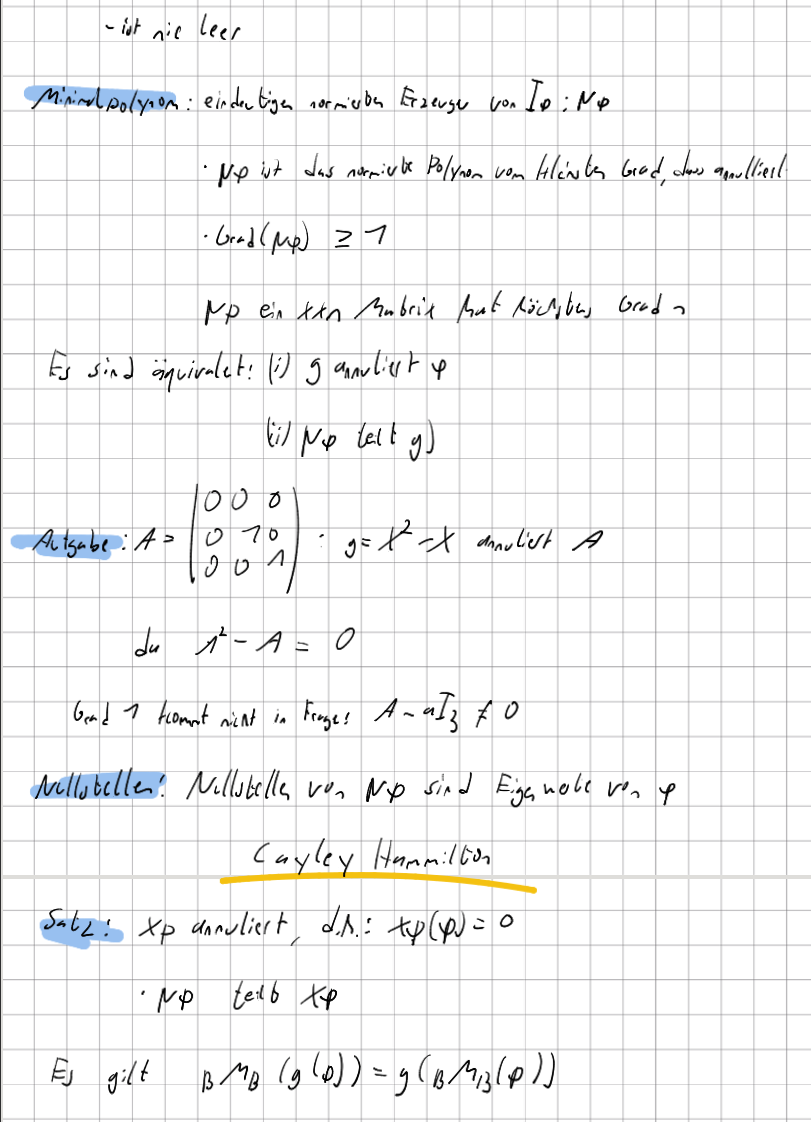 - ist nie leer
Minimalpolynom: eindeutigen normierten Erzeuger von Iφ : μφ
· μφ ist das normierte Polynom vom kleinsten Grad, dass annulliert
· Grad(μφ) ≥ 1
μφ ein nxn Matrix hat höchstens Grad n
Es sind äquivalet: (i) g annuliert φ
(ii) μφ teilt g)
Aufgabe: A = (0 0 0
0 1 0 : g = X² - X annuliert A
0 0 1)
da A² - A = 0
Grad 1 kommt nicht in Frage: A - aI₃ ≠ 0
Nullstellen: Nullstellen von μφ sind Eigenwerte von φ
Cayley Hammilton
Satz: χφ annuliert, d.h.: χφ(φ) = 0
· μφ teilt χφ
Es gilt BMB (g(φ)) = g(BMB(φ))